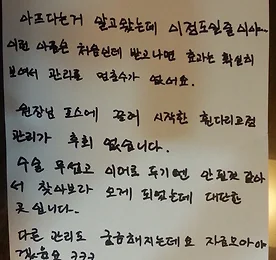 아프다는거 알고왔는데 이정도일줄이야~
이런 아픔은 처음인데 받고나면 효과는 확실히
보여서 관리를 멈출수가 없어요.
원장님 포스에 끌려 시작한 휜다리교정
관리가 후회 없습니다.
수술 무섭고 이대로 두기엔 안될것 같아
서 찾아보다 오게 되었는데 대단한
곳 입니다.
다른 관리도 궁금해지는데요 자금모아야
겠어요 ㅋㅋㅋ